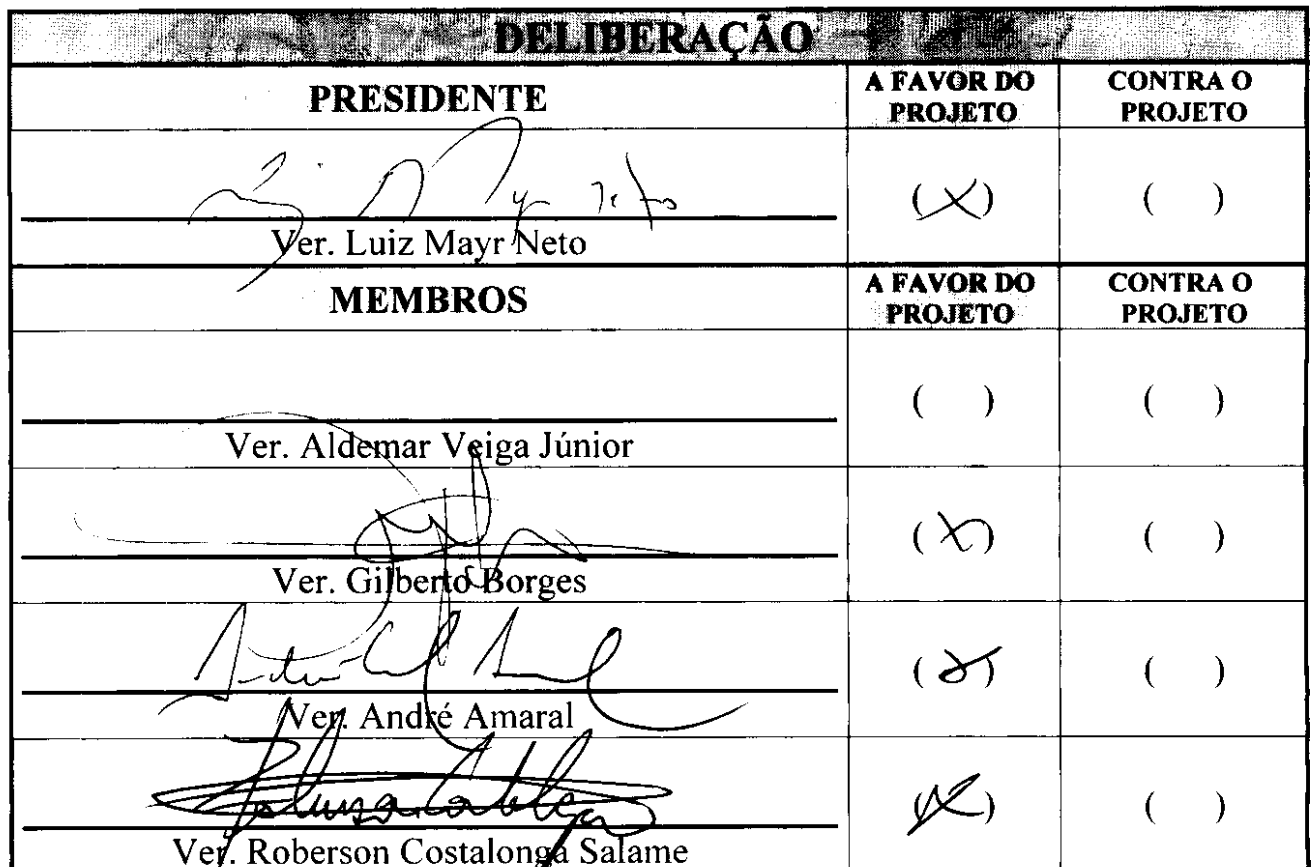 DELIBERAÇÃO
PRESIDENTE
A FAVOR DO PROJETO
CONTRA O PROJETO
Ver. Luiz Mayr Neto
(X)
( )
MEMBROS
A FAVOR DO PROJETO
CONTRA O PROJETO
Ver. Aldemar Veiga Júnior
( )
( )
Ver. Gilberto Borges
(X)
( )
Ver. André Amaral
(X)
( )
Ver. Roberson Costalonga Salame
(X)
( )